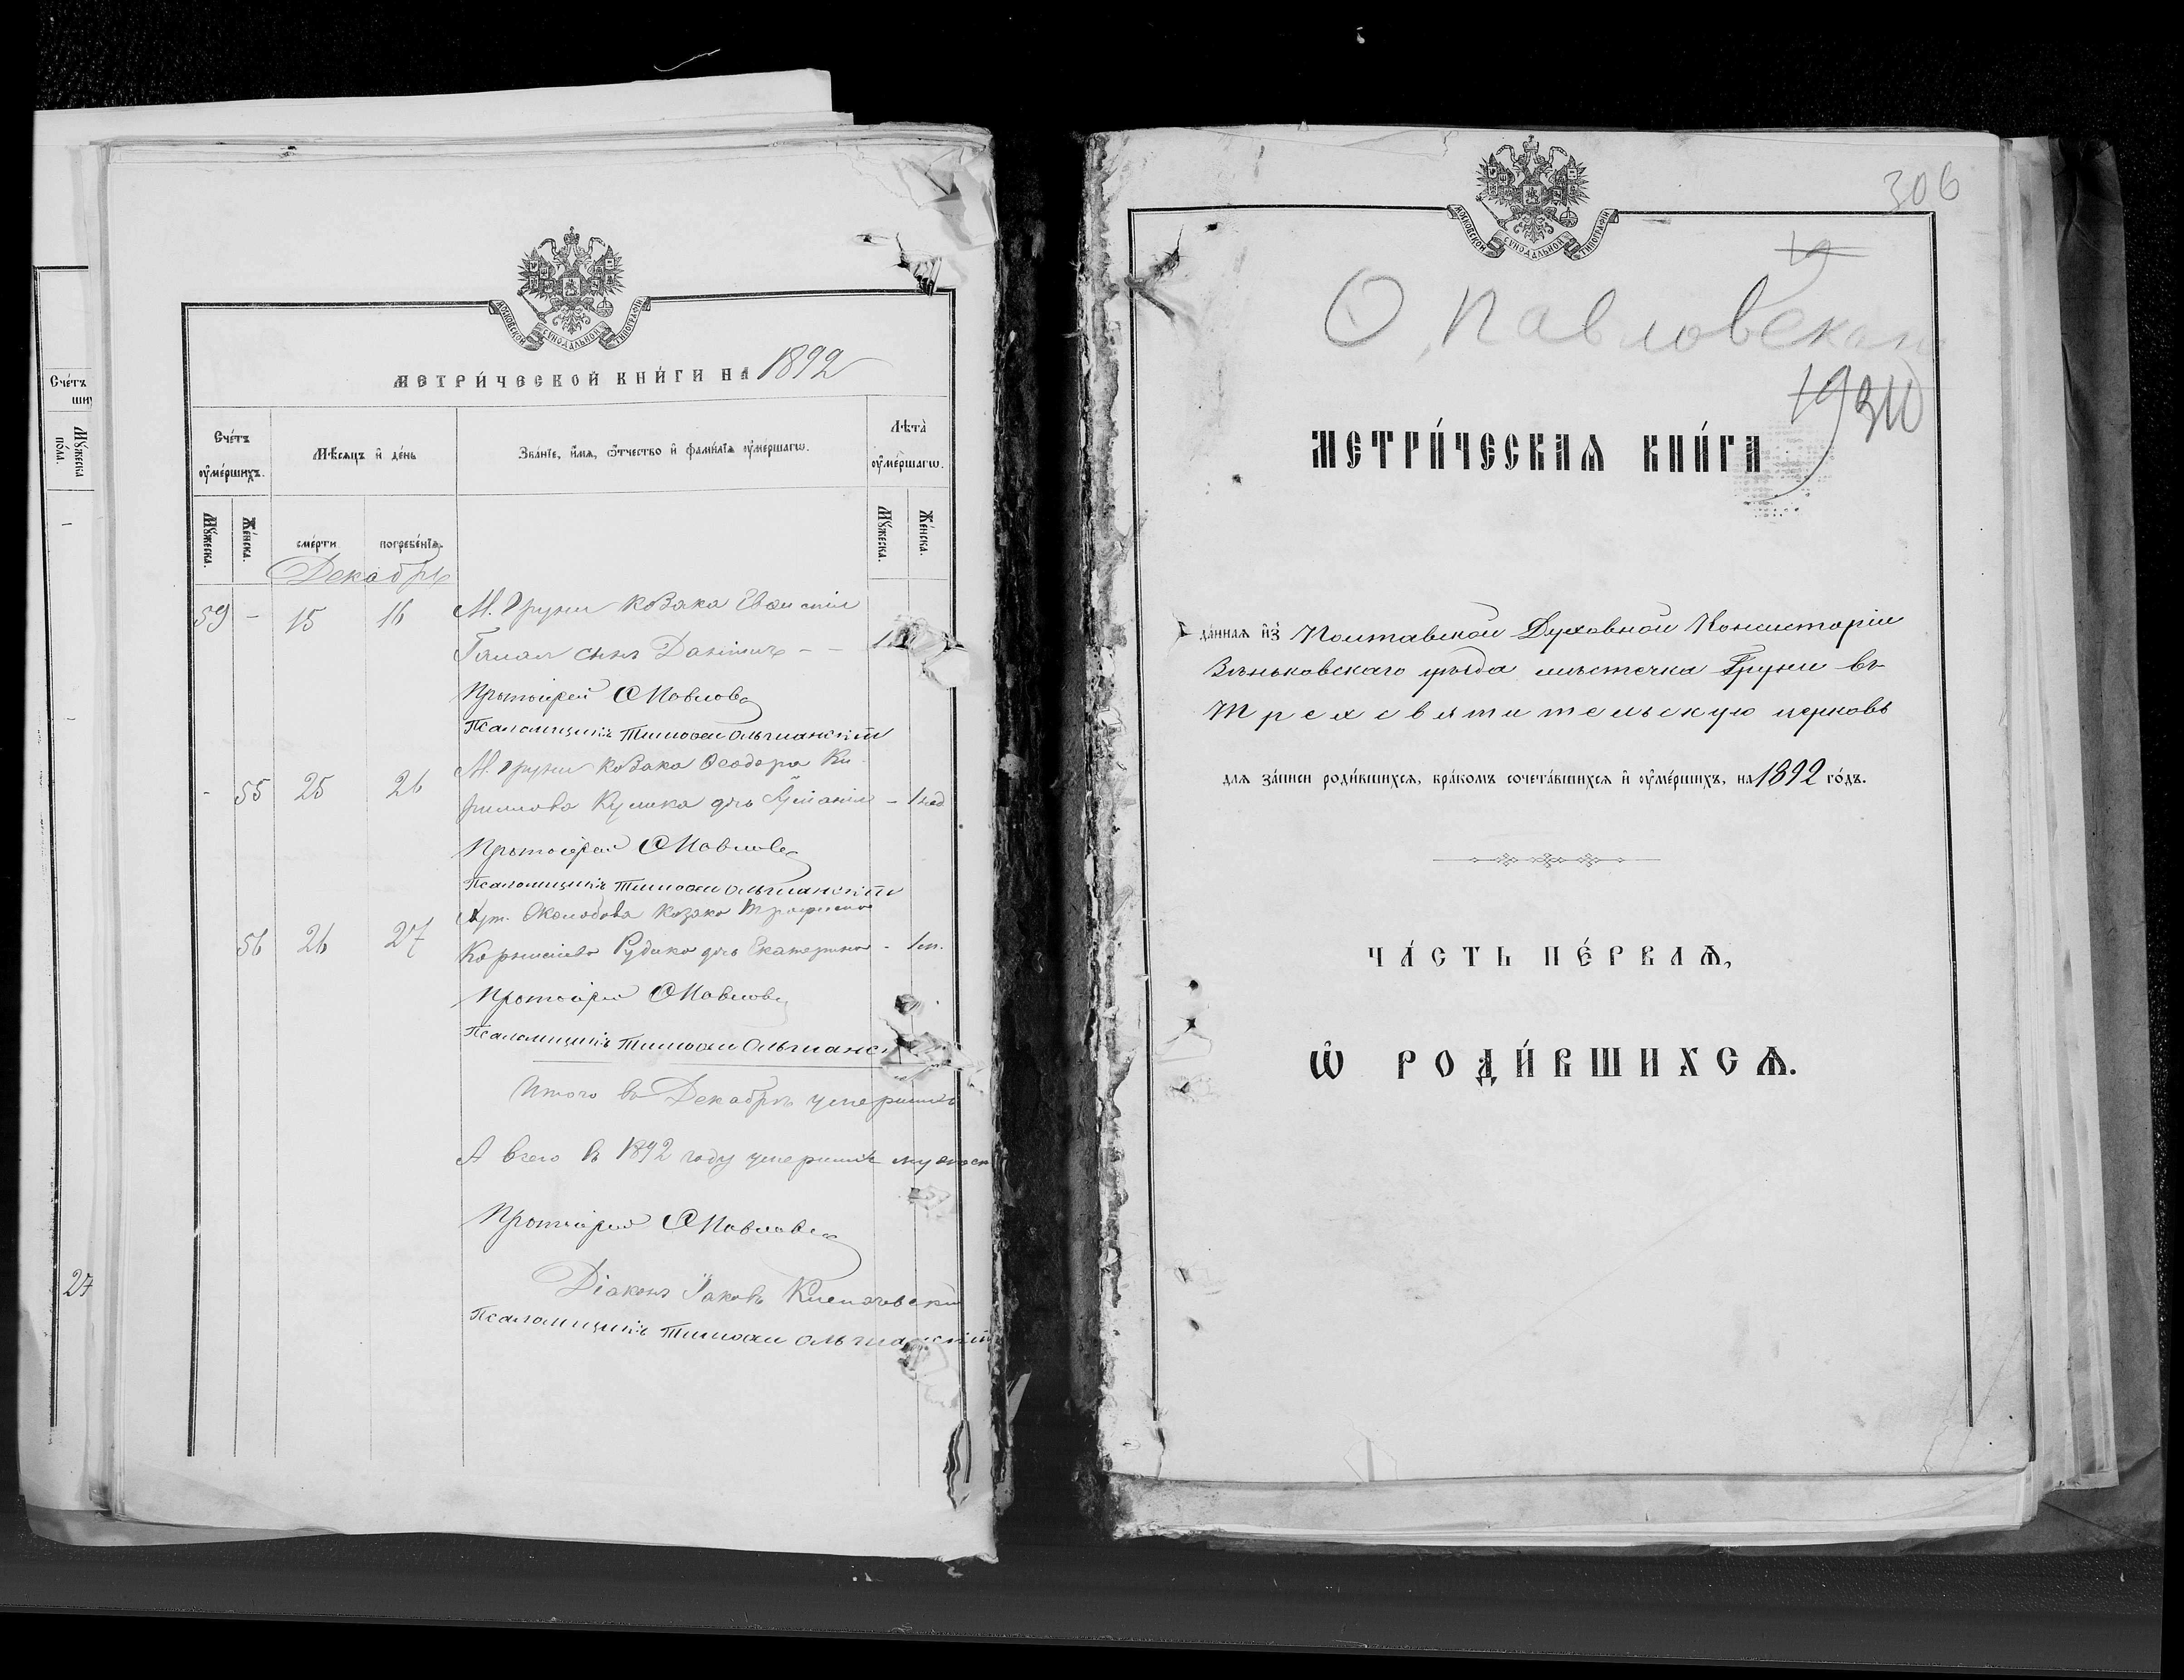 Счéтъ
МꙊжеска
пола.
27
МОСКОВСКОЙ СѴНОДАЛЬНОЙ ТИПОГРАФІИ
МЕТРИ́ЧЕСКОЙ КНИ́ГИ НА 1892
Счéтъ
ᲂу҆мéршихъ.
Мѣ́сяцъ и҆ дéнь
Звáнїе, и҆́мѧ, ѻ҆́тчество и҆ фами́лїѧ ᲂу҆мéршагѡ.
Лѣ́та
ᲂу҆мéршагѡ.
МꙊжеска.
Жéнска.
смéрти
погребéнїѧ.
МꙊжеска.
Жéнска.
Декабрь
59 - 15 16 М. Груни козака
сынъ Даніилъ - -
Протоіерей С Павловъ
Псаломщикъ Тимофей Ольшанскій
- 55 25 26 М. Груни козака Ѳеодора Ки-
риллова Кулика дчь - 1 нед
Протоіерей С Павловъ
Псаломщикъ Тимофей Ольшанскій
56 26 27 Хут. козака Трофима
Рудика дчь Екатерина - 1 м.
Протоіерей С Павловъ
Псаломщикъ Тимофей Ольшанск
Итого въ Декабрѣ умершихъ
А всего въ 1892 году умершихъ мужеск
Протоіерей С Павловъ
Діаконъ Іаковъ
Псаломщикъ Тимофей Ольшанскій
306
МОСКОВСКОЙ СѴНОДАЛЬНОЙ ТИПОГРАФІИ
19
О. Павловская
19 310
МЕТРИ́ЧЕСКАѦ КНИ́ГА
дáнная и҆з̾ Полтавской Духовной Консисторіи
Зѣньковскаго уѣзда мѣстечка Груни въ
Трехсвятительскую церковь
для зáписи роди́вшихсѧ, брáкомъ сочетáвшихсѧ и҆ ᲂу҆мéршихъ, на 1892 гóдъ.
ЧА́СТЬ ПЕ́РВАѦ,
Ѡ҆ РОДИ́ВШИХСѦ.